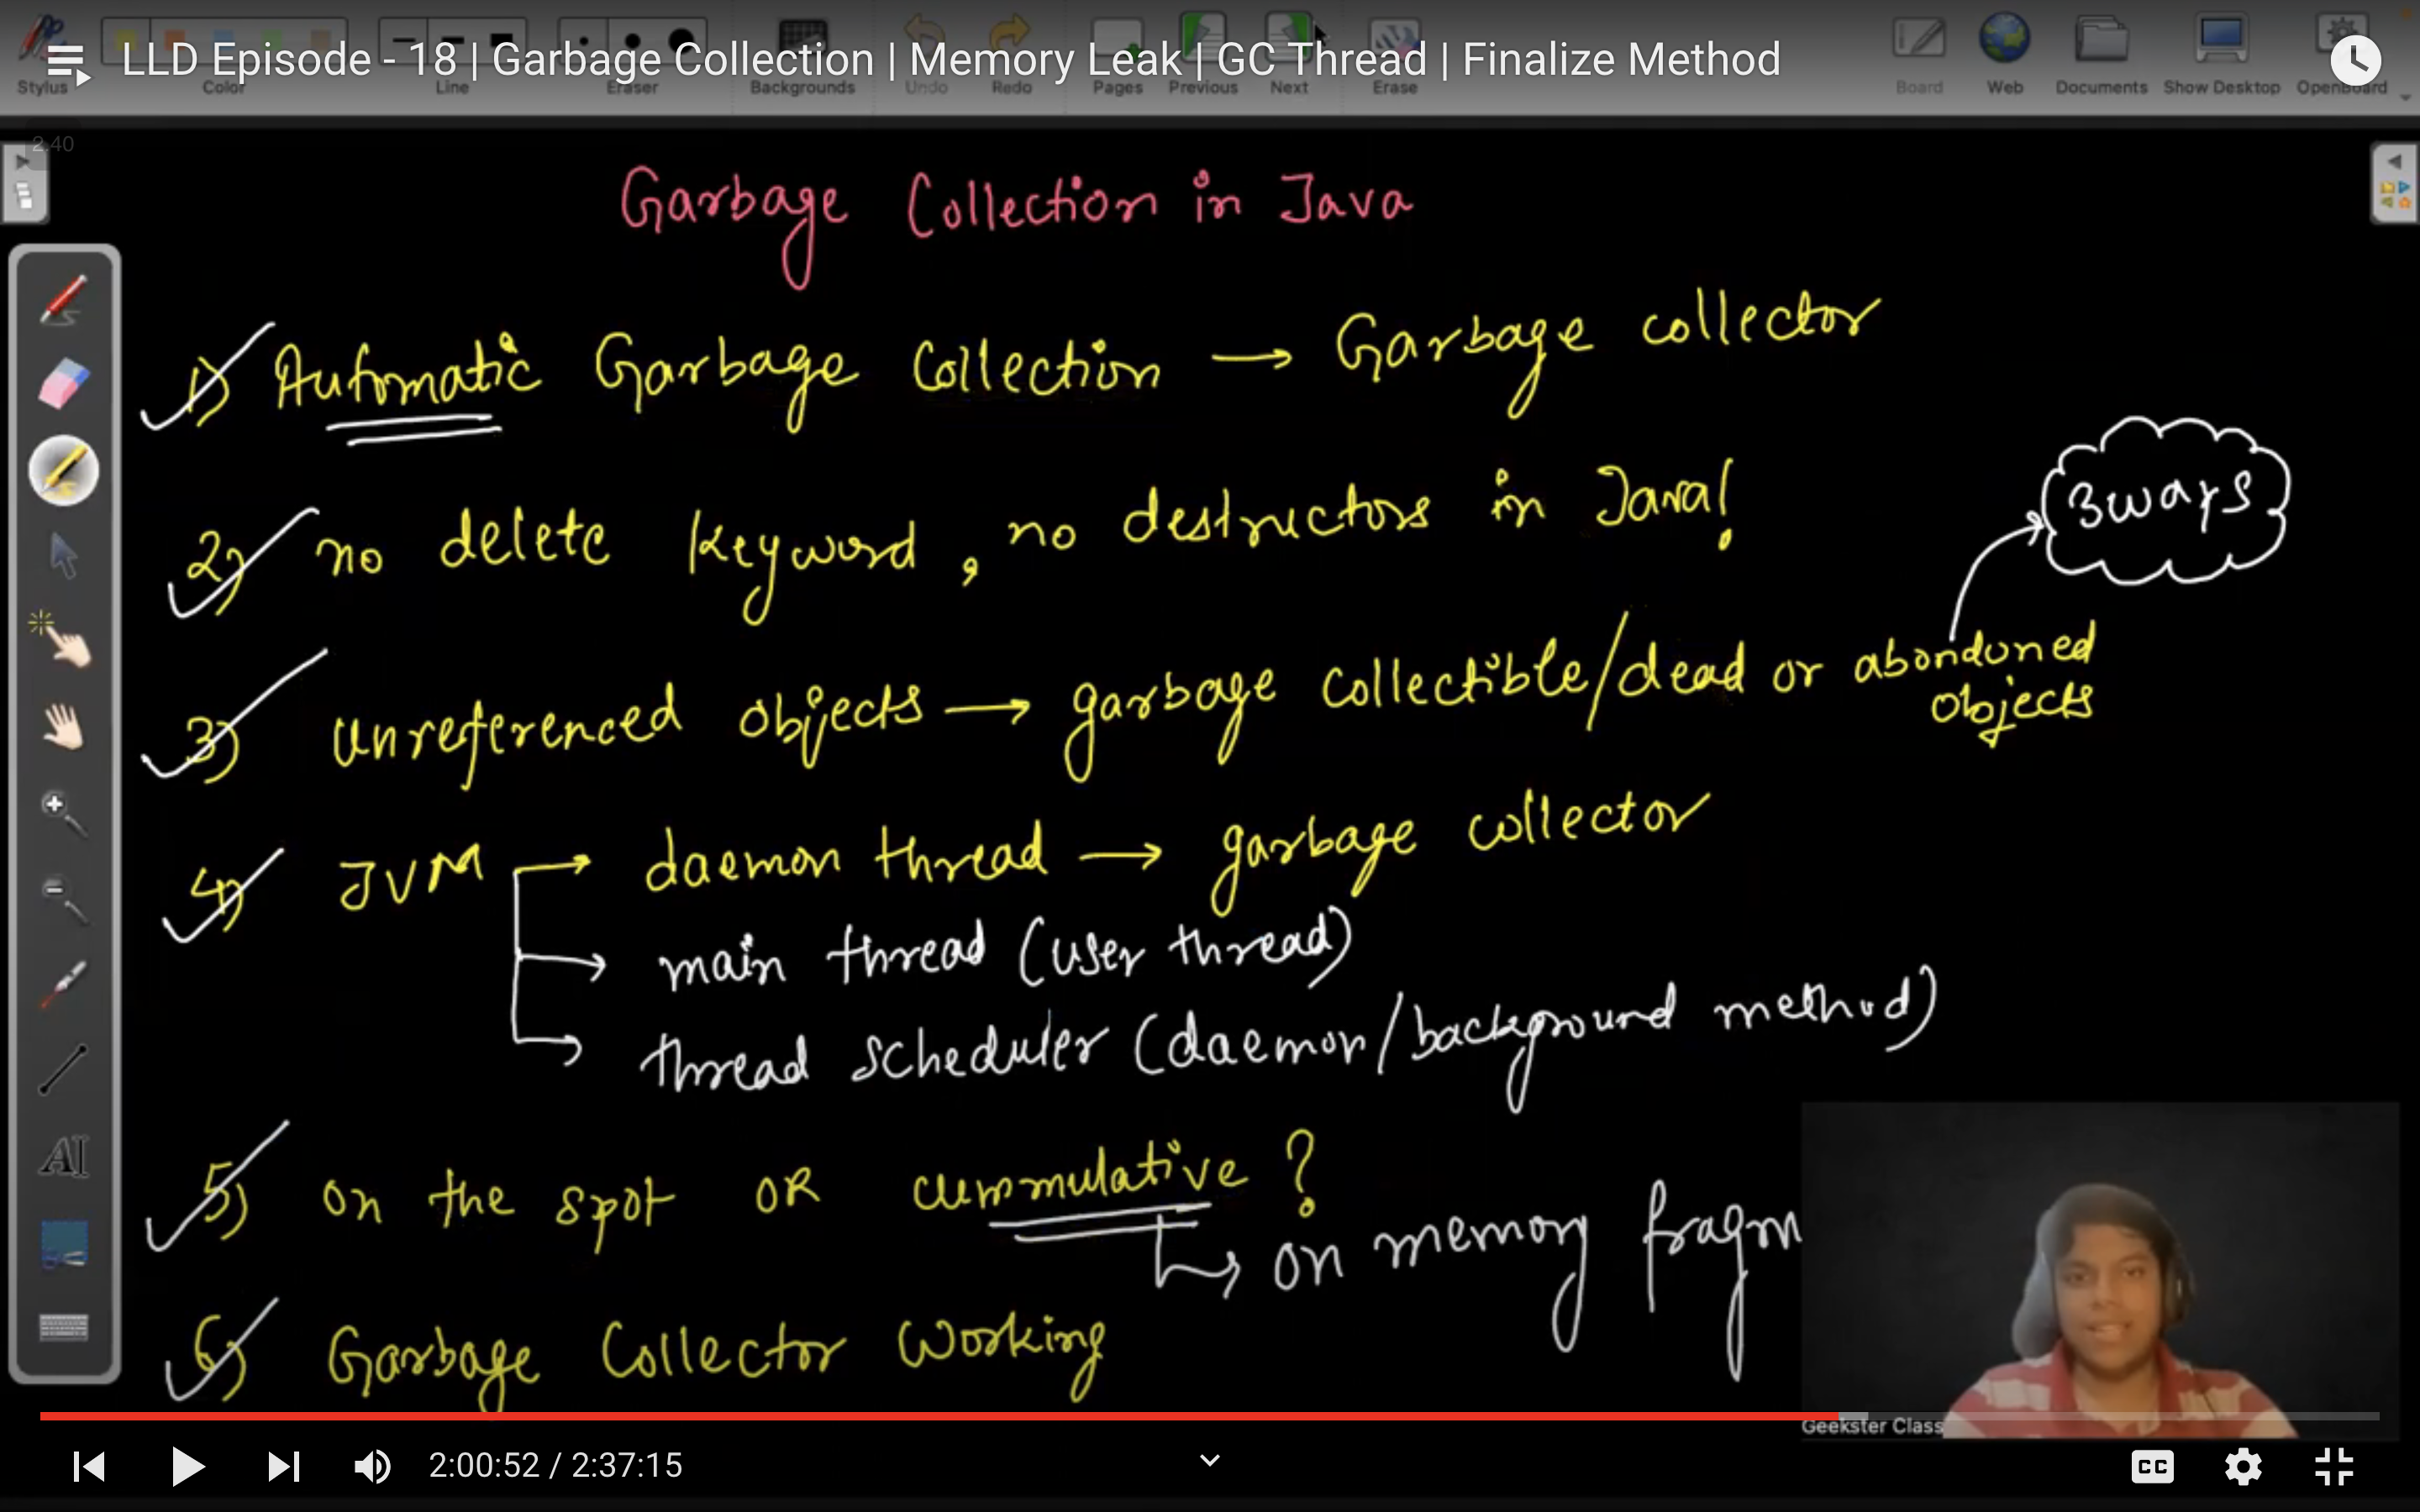 LLD Episode - 18 | Garbage Collection | Memory Leak | GC Thread | Finalize Method
Stylus Color Line Eraser Backgrounds Undo Redo Pages Previous Next Erase Board Web Documents Show Desktop OpenBoard
2.40
Garbage Collection in Java
1) Automatic Garbage Collection → Garbage collector
2) no delete keyword, no destructors in Java!
3ways
3) unreferenced objects → garbage collectible/dead or abondoned
objects
4) JVM → daemon thread → garbage collector
→ main thread (user thread)
→ thread scheduler (daemon/background method)
5) on the spot OR cummulative ?
→ on memory fragm
6) Garbage Collector Working
AI
Geekster Class
2:00:52 / 2:37:15
CC